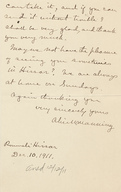 can take it, and if you can
send it without trouble I
shall be very glad, and thank
you very much.
May we not have the pleasure
of seeing you sometime
in Hinson? We are always
at home on Sundays.
Again thanking you
very sincerely yours
Alice Manning
Hinson
Dec. 10, 1911.